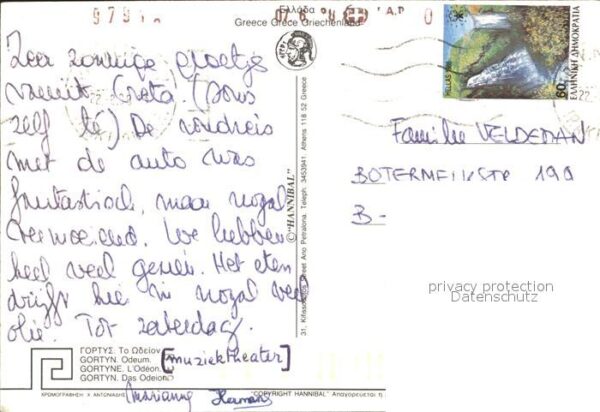 97941
Ελλάδα
Greece Grèce Griechenland
HELLAS
60
ΕΛΛΗΝΙΚΗ ΔΗΜΟΚΡΑΤΙΑ
Zeer zonnige groetjes
vanuit Creta (soms
zelf te) De rondreis
met de auto was
fantastisch, maar nogal
vermoeiend. We hebben
heel veel gezien. Het eten
drijft hier in nogal veel
olie. Tot zaterdag.
[muziektheater]
Marianne Herman
Familie VELDEMAN
BOTERMELKSTR 199
B-
privacy protection
Datenschutz
©"HANNIBAL"
31, Kifissou Street Ano Petralona. Teleph: 3453941. Athens 118 52 Greece
ΓΟΡΤΥΣ. Το Ωδείον
GORTYN. Odeum.
GORTYNE. L'Odéon.
GORTYN. Das Odeion
ΧΡΩΜΟΓΡΑΦΗΣΗ Χ ΑΝΤΩΝΙΑΔΗΣ
"COPYRIGHT HANNIBAL" Απαγορεύεται